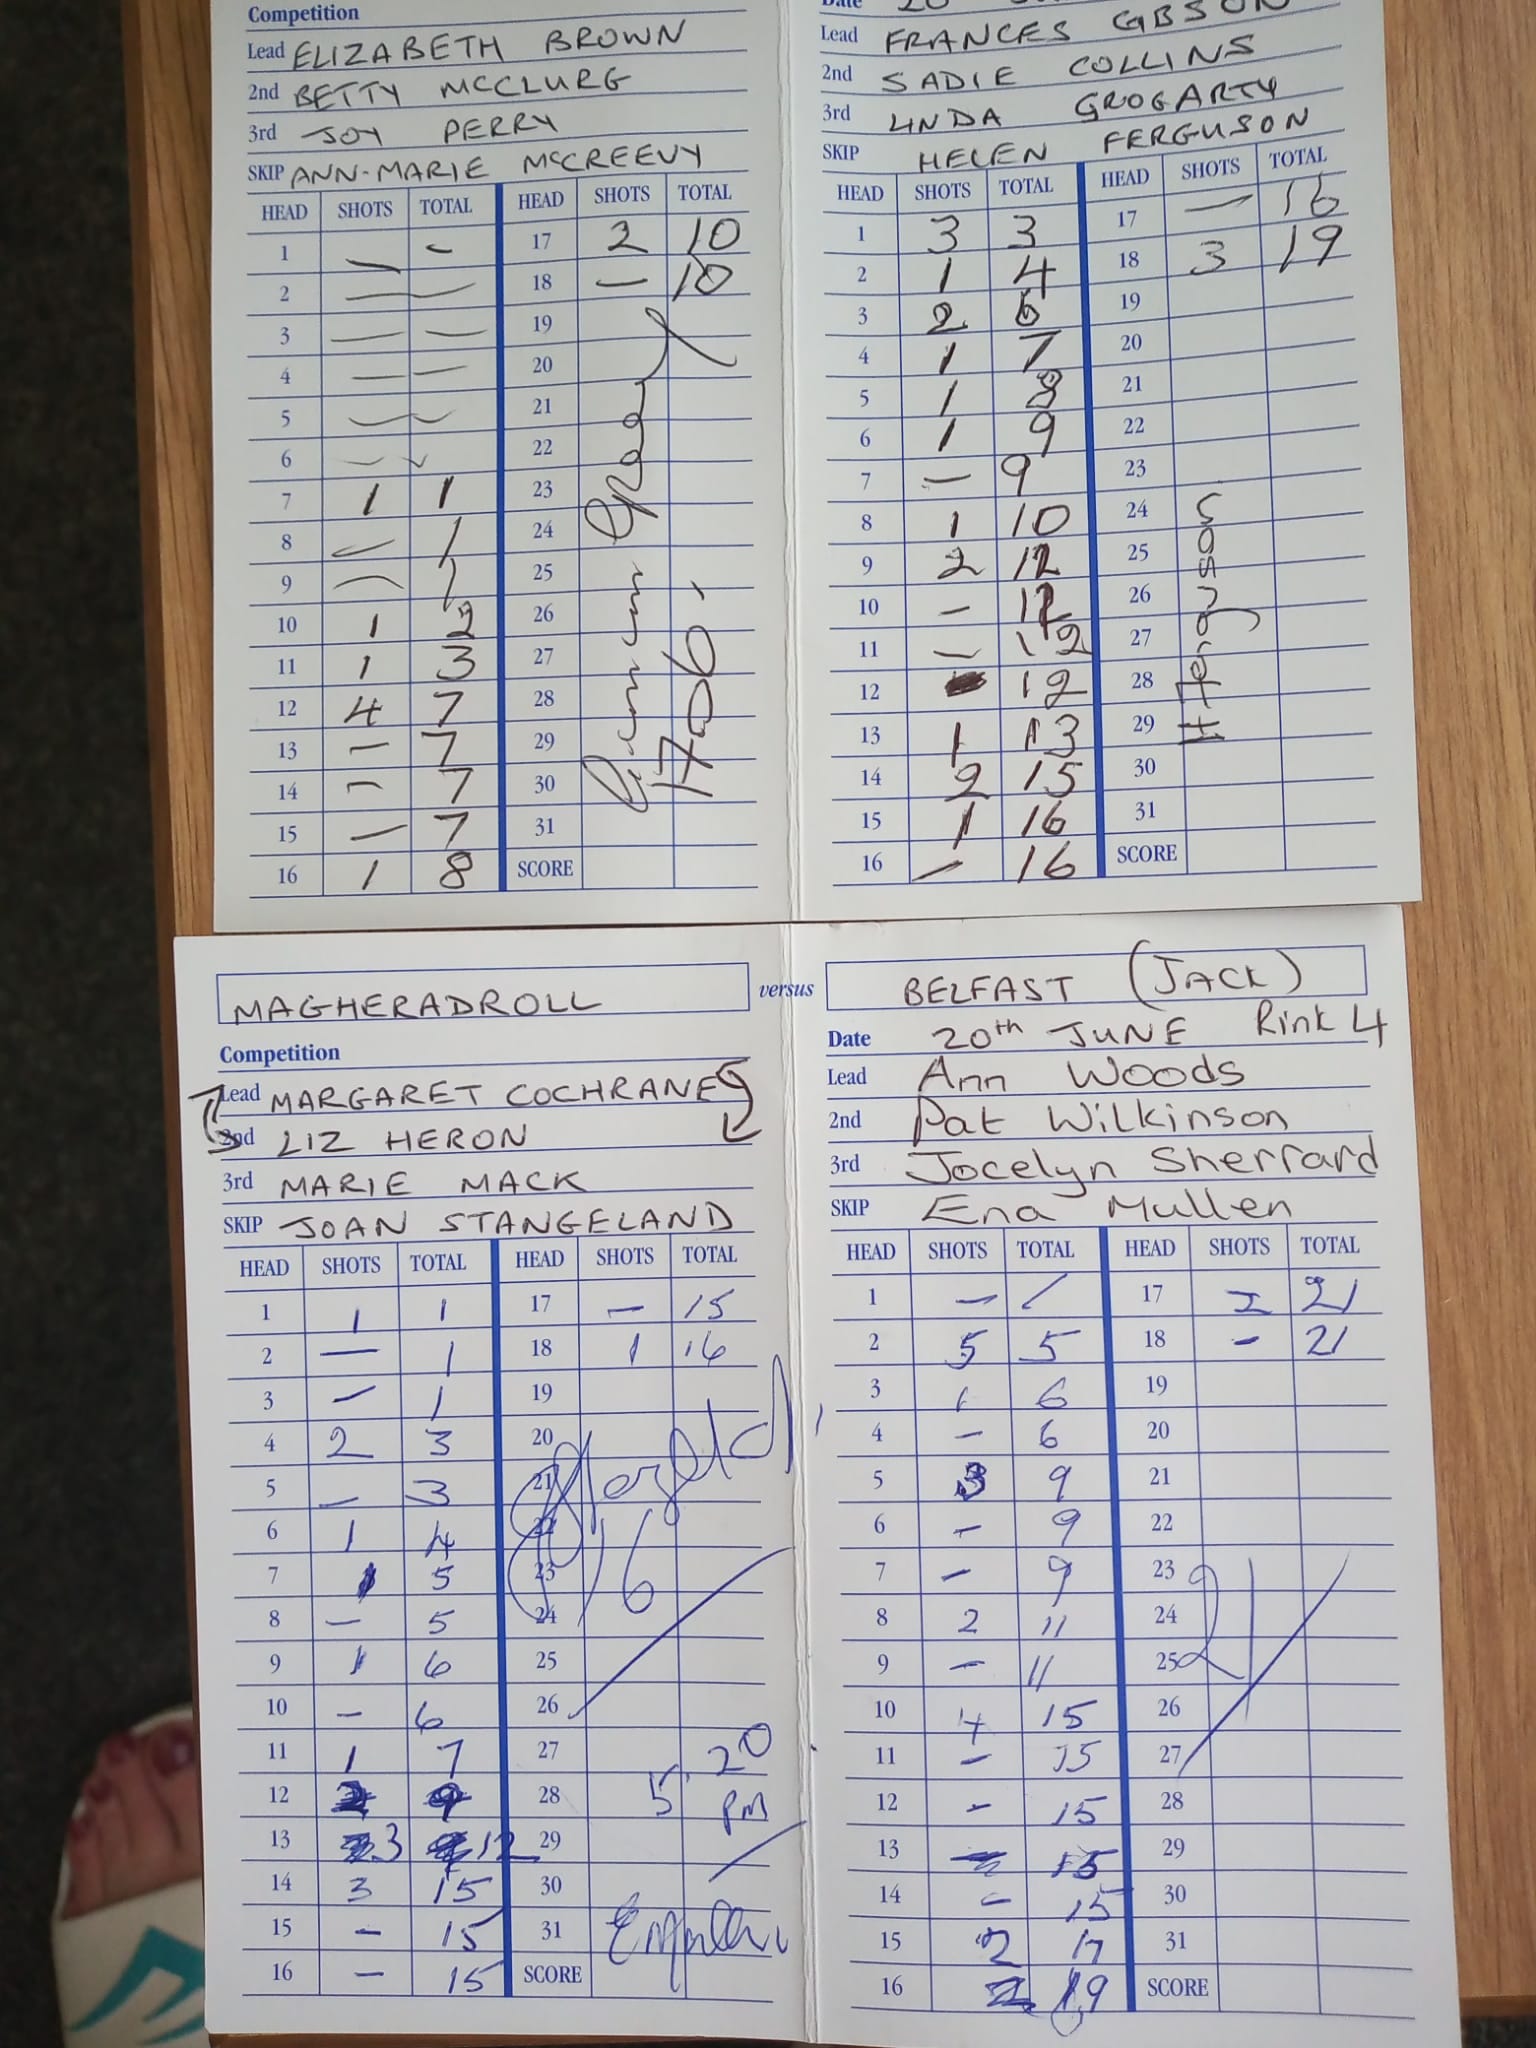 Competition
Lead ELIZABETH BROWN
2nd BETTY MCCLURG
3rd JOY PERRY
SKIP ANN-MARIE MCCREEVY
HEAD SHOTS TOTAL HEAD SHOTS TOTAL
1 — - 17 2 10
2 — — 18 — 10
3 — — 19
4 — — 20
5 — — 21
6 — — 22
7 1 1 23
8 — 1 24
9 — 1 25
10 1 2 26
11 1 3 27
12 4 7 28
13 — 7 29
14 — 7 30
15 — 7 31
16 1 8 SCORE
Date 20
Lead FRANCES GBSON
2nd SADIE COLLINS
3rd LINDA GROGARTY
SKIP HELEN FERGUSON
HEAD SHOTS TOTAL HEAD SHOTS TOTAL
1 3 3 17 — 16
2 1 4 18 3 19
3 2 6 19
4 1 7 20
5 1 8 21
6 1 9 22
7 — 9 23
8 1 10 24
9 2 12 25
10 — 12 26
11 — 12 27
12 12 28
13 1 13 29
14 2 15 30
15 1 16 31
16 — 16 SCORE
H Ferguson
MAGHERADROLL versus BELFAST (JACK)
Competition
Lead MARGARET COCHRANE
2nd LIZ HERON
3rd MARIE MACK
SKIP JOAN STANGELAND
HEAD SHOTS TOTAL HEAD SHOTS TOTAL
1 1 1 17 — 15
2 — 1 18 1 16
3 — 1 19
4 2 3 20
5 — 3 21
6 1 4 22
7 1 5 23
8 — 5 24
9 1 6 25
10 — 6 26
11 1 7 27
12 2 9 28
13 3 12 29
14 3 15 30
15 — 15 31
16 — 15 SCORE
16
5.20
PM
Date 20th JUNE Rink 4
Lead Ann Woods
2nd Pat Wilkinson
3rd Jocelyn Sherrard
SKIP Ena Mullen
HEAD SHOTS TOTAL HEAD SHOTS TOTAL
1 — / 17 2 21
2 5 5 18 - 21
3 1 6 19
4 — 6 20
5 3 9 21
6 — 9 22
7 — 9 23
8 2 11 24
9 — 11 25
10 4 15 26
11 — 15 27
12 — 15 28
13 — 15 29
14 — 15 30
15 2 17 31
16 2 19 SCORE
21